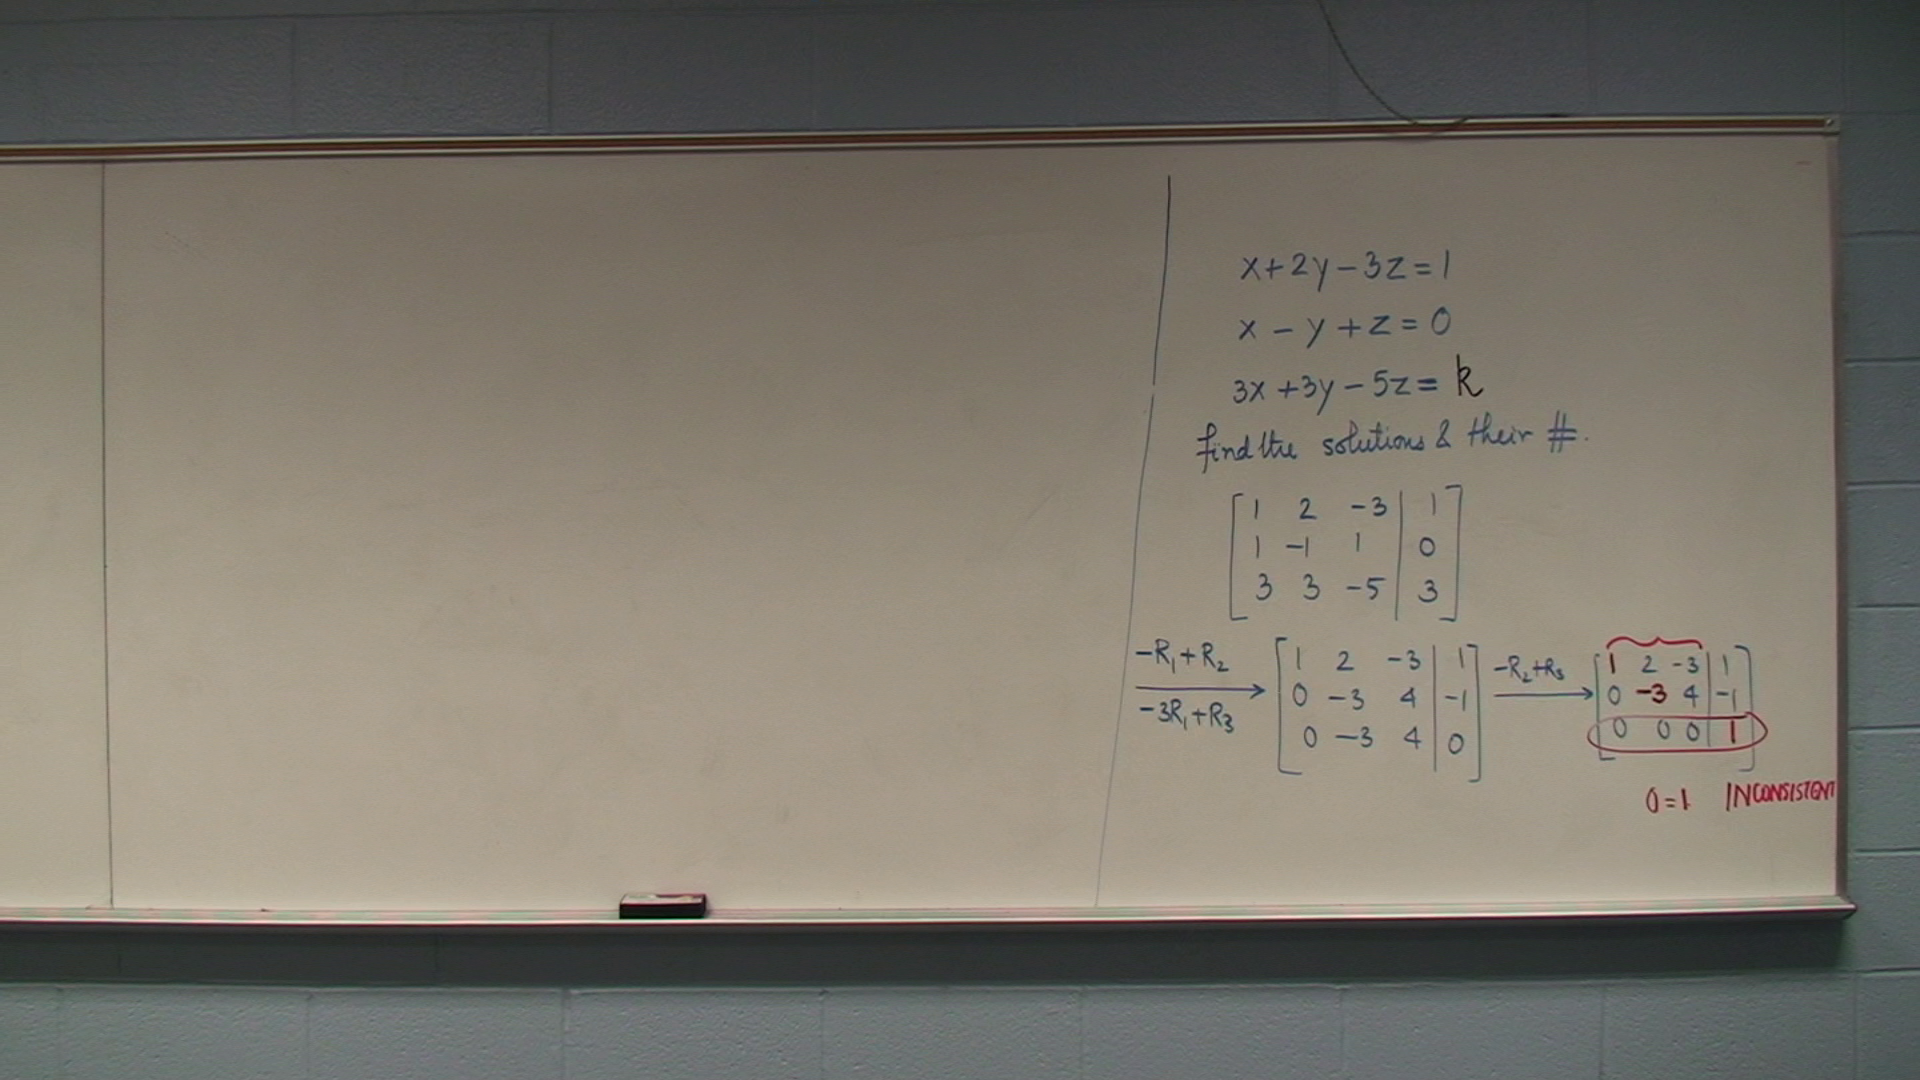 x+2y-3z=1
x-y+z=0
3x+3y-5z=k
find the solutions & their #.
1 2 -3 | 1
1 -1 1 | 0
3 3 -5 | 3
-R₁+R₂
-3R₁+R₃
1 2 -3 | 1
0 -3 4 | -1
0 -3 4 | 0
-R₂+R₃
1 2 -3 | 1
0 -3 4 | -1
0 0 0 | 1
0=1 INCONSISTENT